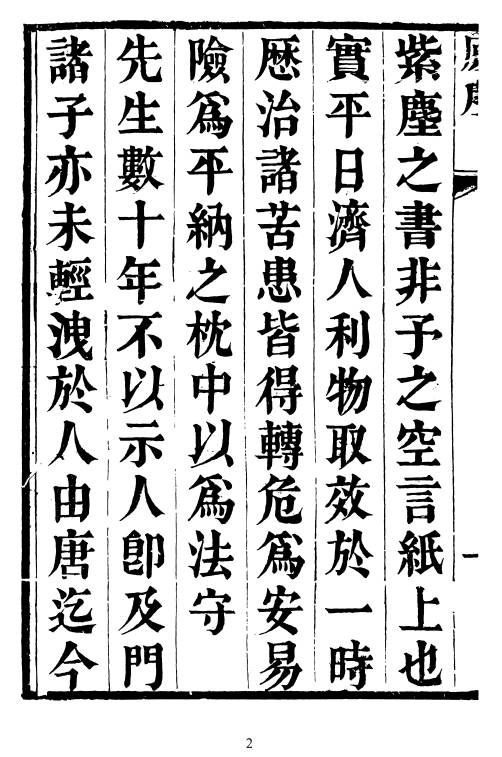 紫塵之書非予之空言紙上也
實平日濟人利物取效於一時
歷治諸苦患皆得轉危爲安易
險爲平納之枕中以爲法守
先生數十年不以示人卽及門
諸子亦未輕洩於人由唐迄今
一
2